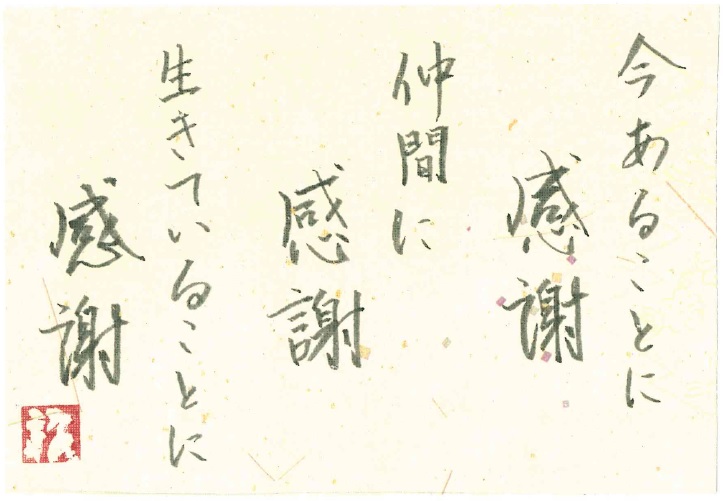 今あることに
感謝
仲間に
感謝
生きていることに
感謝